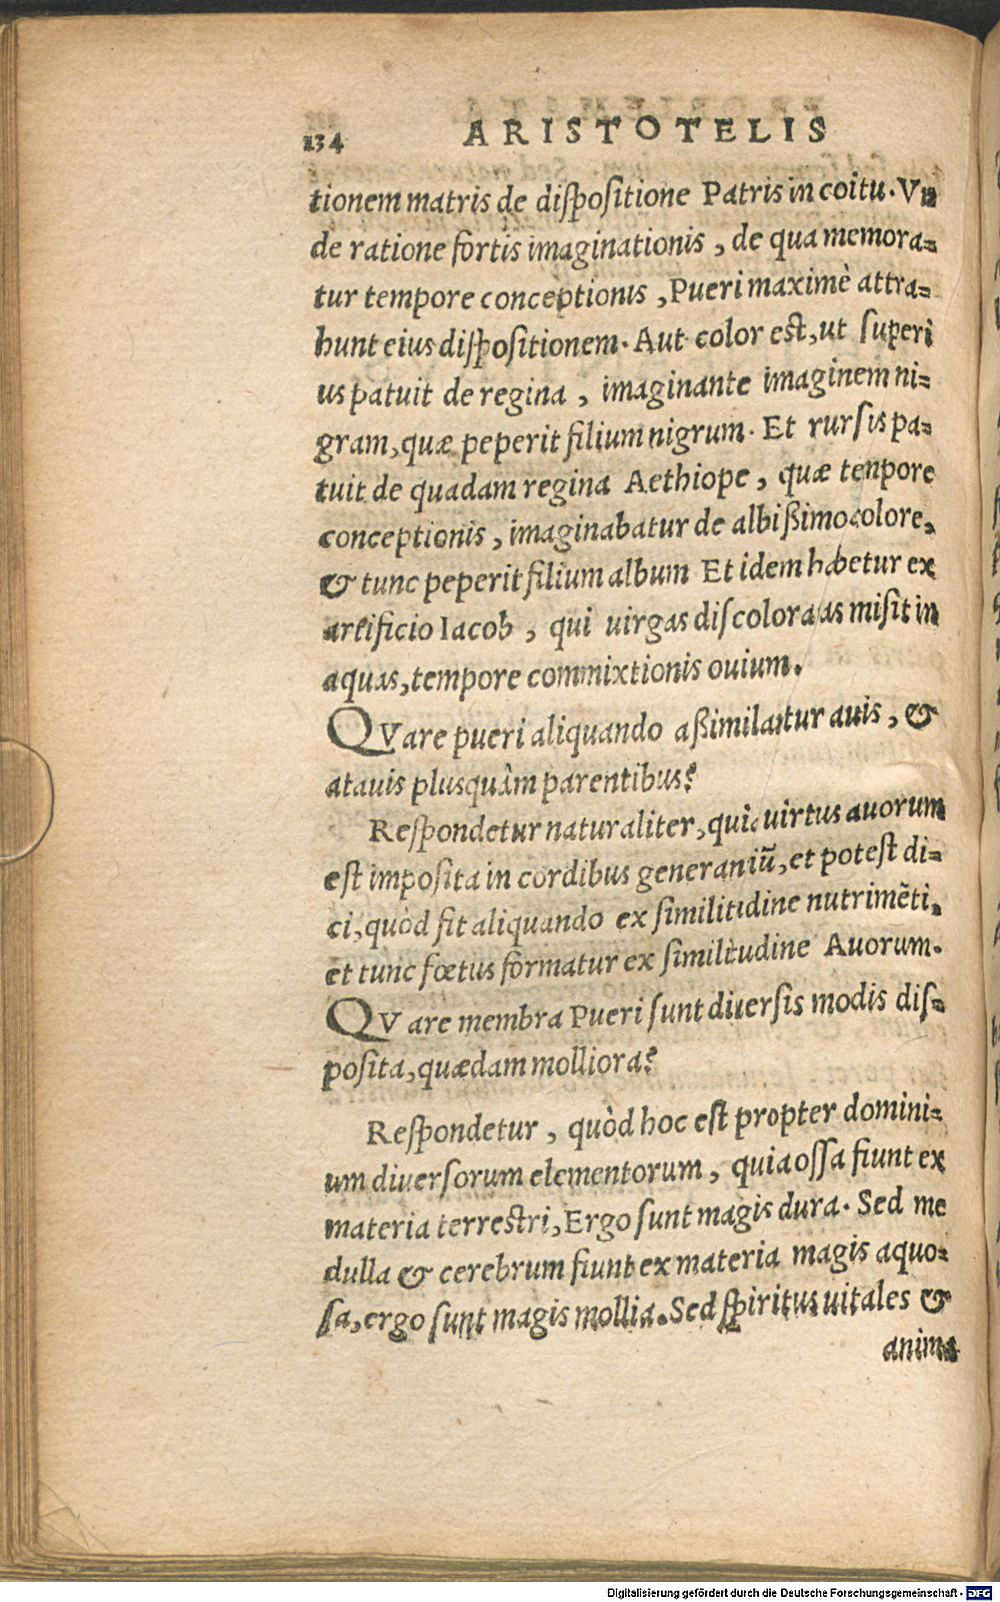 134 ARISTOTELIS
tionem matris de diſpoſitione Patris in coitu. Vn
de ratione fortis imaginationis, de qua memora=
tur tempore conceptionis, Pueri maximè attra=
hunt eius diſpoſitionem. Aut color eſt, ut ſuperi
us patuit de regina, imaginante imaginem ni=
gram, quæ peperit filium nigrum. Et rurſis pa=
tuit de quadam regina Aethiope, quæ tenpore
conceptionis, imaginabatur de albiſsimo colore,
& tunc peperit filium album Et idem habetur ex
artificio Iacob, qui uirgas diſcoloratas miſit in
aquas, tempore commixtionis ouium.
QVare pueri aliquando aſsimilantur auis, &
atauis plusquàm parentibus?
Reſpondetur naturaliter, quia uirtus auorum
eſt impoſita in cordibus generantiũ, et poteſt di=
ci, quòd fit aliquando ex ſimilitudine nutrimẽti,
et tunc fœtus formatur ex ſimilitudine Auorum.
QVare membra Pueri ſunt diuerſis modis diſ=
poſita, quædam molliora?
Reſpondetur, quòd hoc eſt propter domini=
um diuerſorum elementorum, quia oſſa fiunt ex
materia terreſtri, Ergo ſunt magis dura. Sed me
dulla & cerebrum fiunt ex materia magis aquo=
ſa, ergo ſunt magis mollia. Sed ſpiritus uitales &
anima
Digitalisierung gefördert durch die Deutsche Forschungsgemeinschaft - DFG